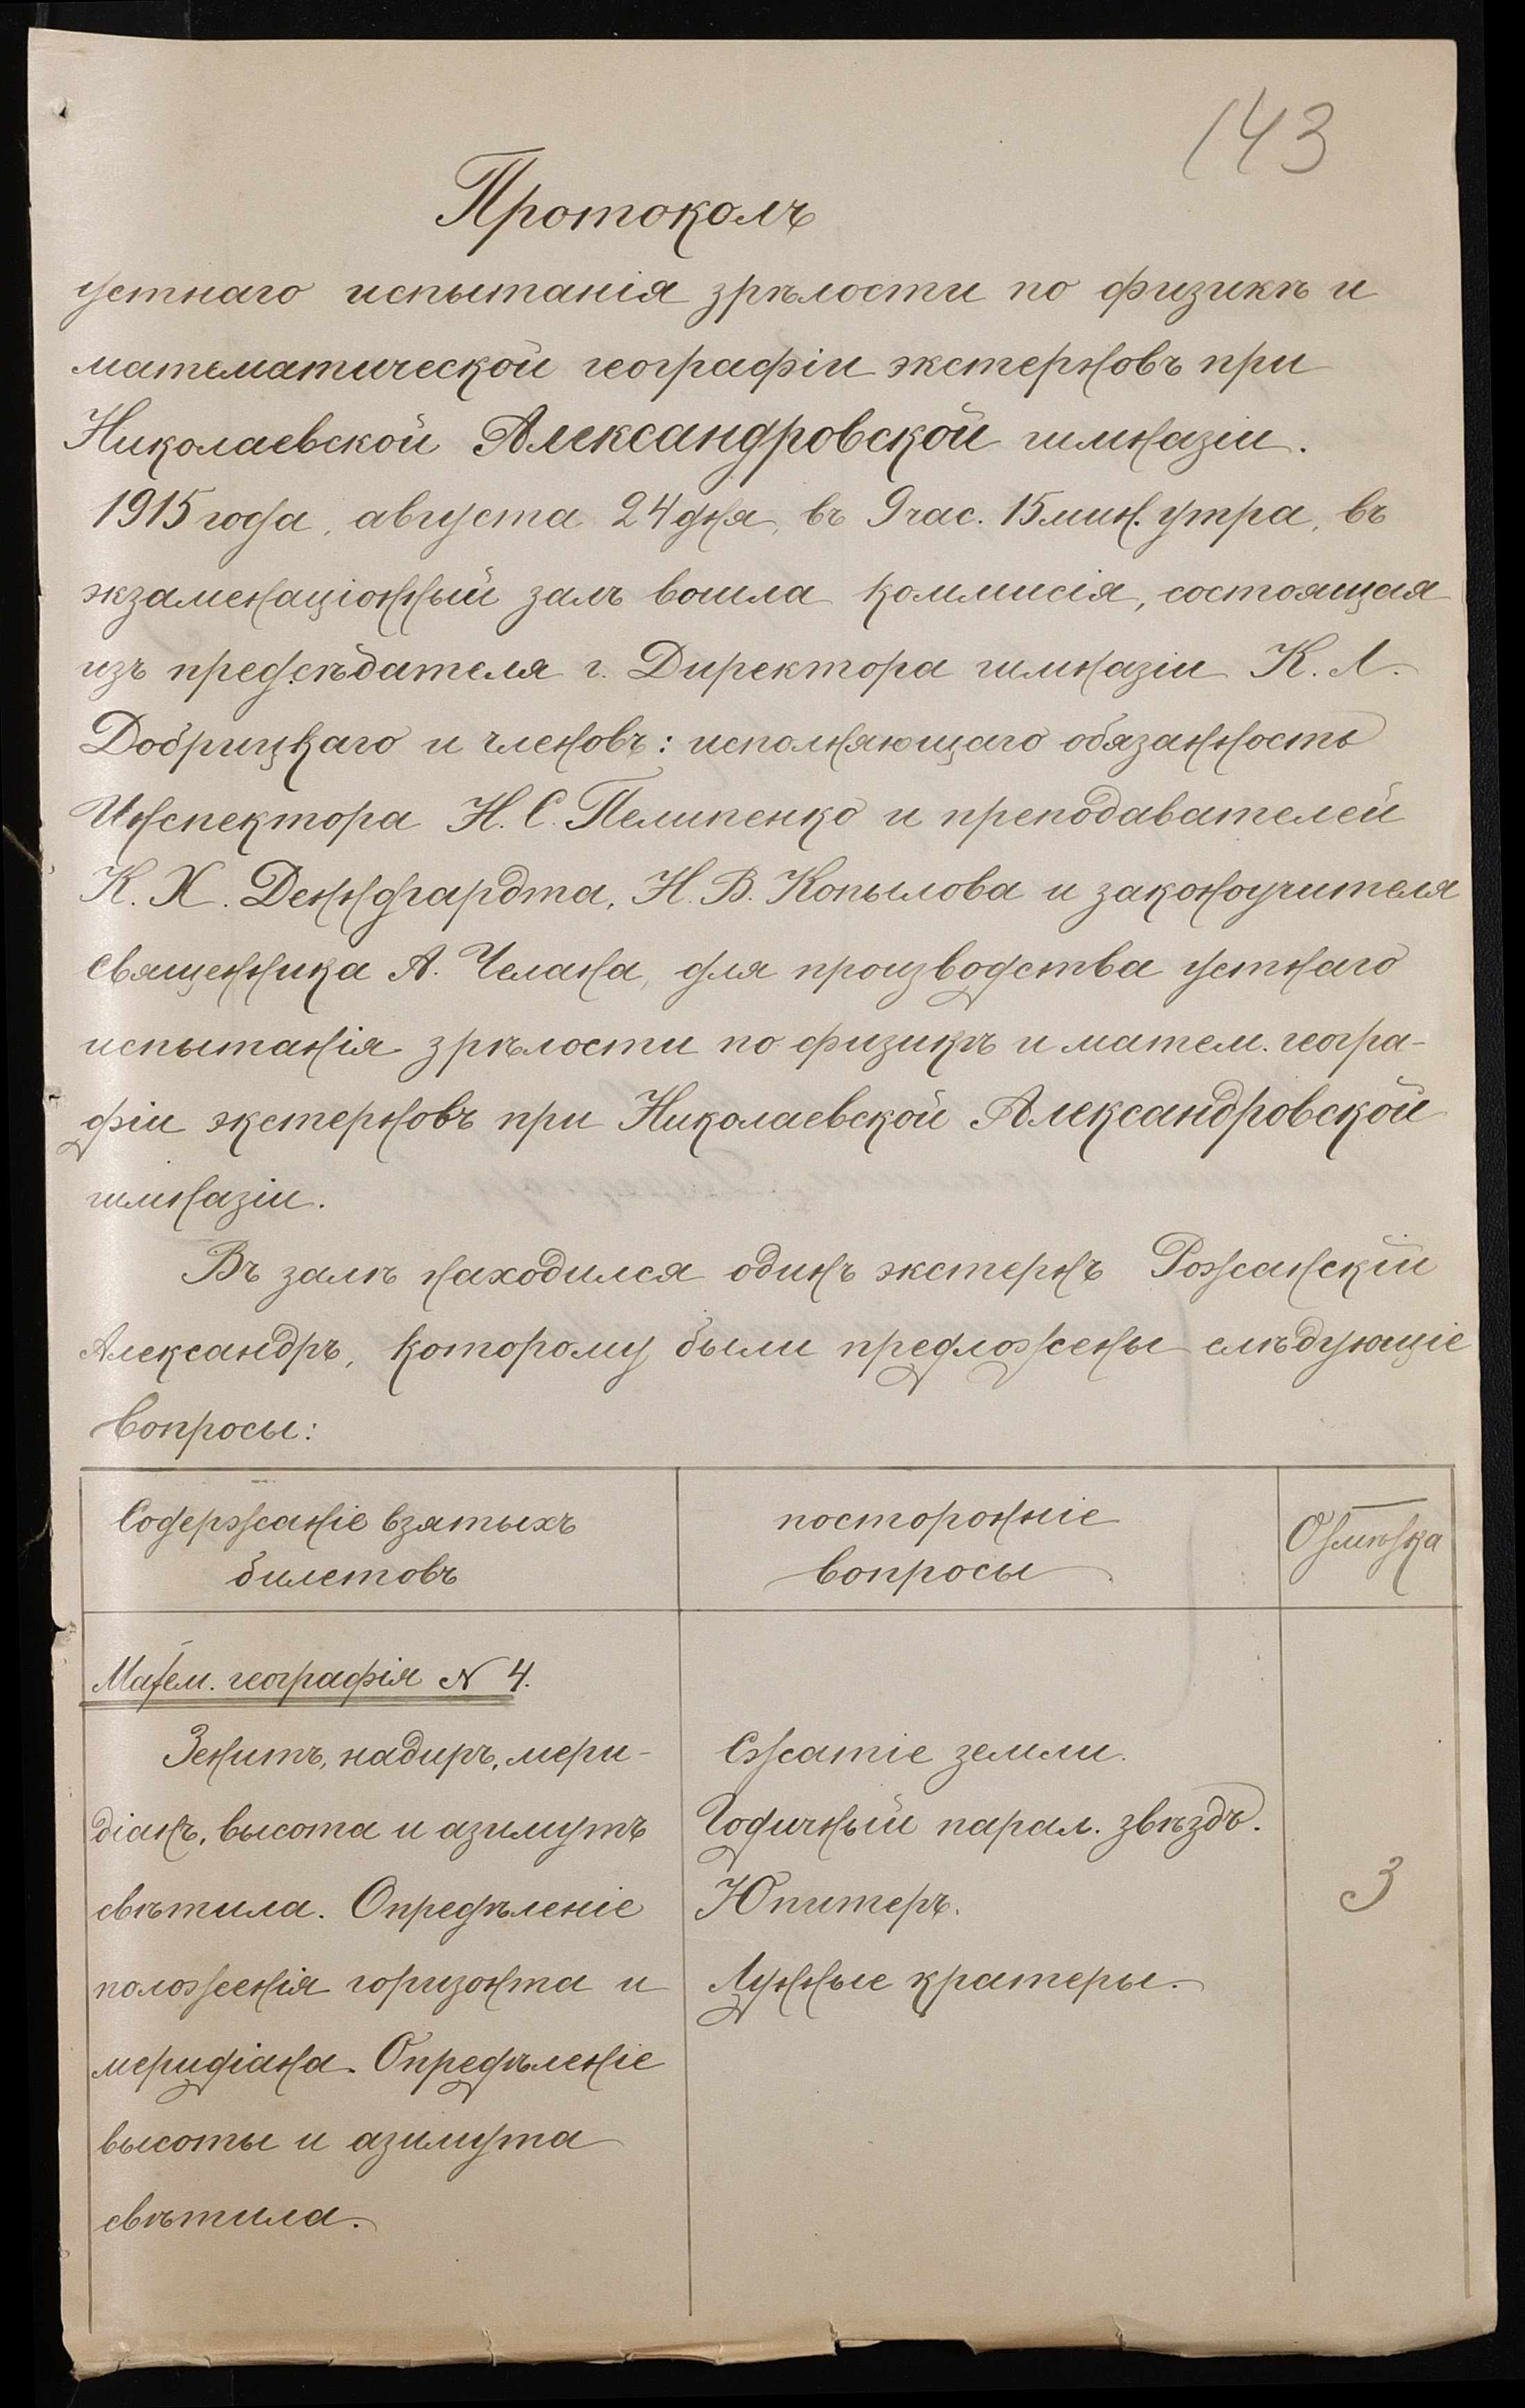 143
Протоколъ
устнаго испытанія зрѣлости по физикѣ и
математической географіи экстерновъ при
Николаевской Александровской гимназіи.
1915 года, августа 24 дня, въ 9 час. 15 мин. утра, въ
экзаменаціонный залъ вошла коммисія, состоящая
изъ предсѣдателя г. Директора гимназіи К. Л.
Добрицкаго и членовъ: исполняющаго обязанность
Инспектора Н. С. Пелипенко и преподавателей
К. Х. Деннгардта, Н. В. Копылова и законоучителя
священника А. Челана, для производства устнаго
испытанія зрѣлости по физикѣ и матем. геогра-
фіи экстерновъ при Николаевской Александровской
гимназіи.
Въ залѣ находился одинъ экстернъ Рожанскій
Александръ, которому были предложены слѣдующіе
вопросы:
Содержаніе взятыхъ
билетовъ
посторонніе
вопросы
Отмѣтка
Матем. географія N 4.
Зенитъ, надиръ, мери-
діанъ, высота и азимутъ
свѣтила. Опредѣленіе
положенія горизонта и
меридіана. Опредѣленіе
высоты и азимута
свѣтила.
Сжатіе земли.
Годичный парал. звѣздъ.
Юпитеръ.
Лунные кратеры.
3